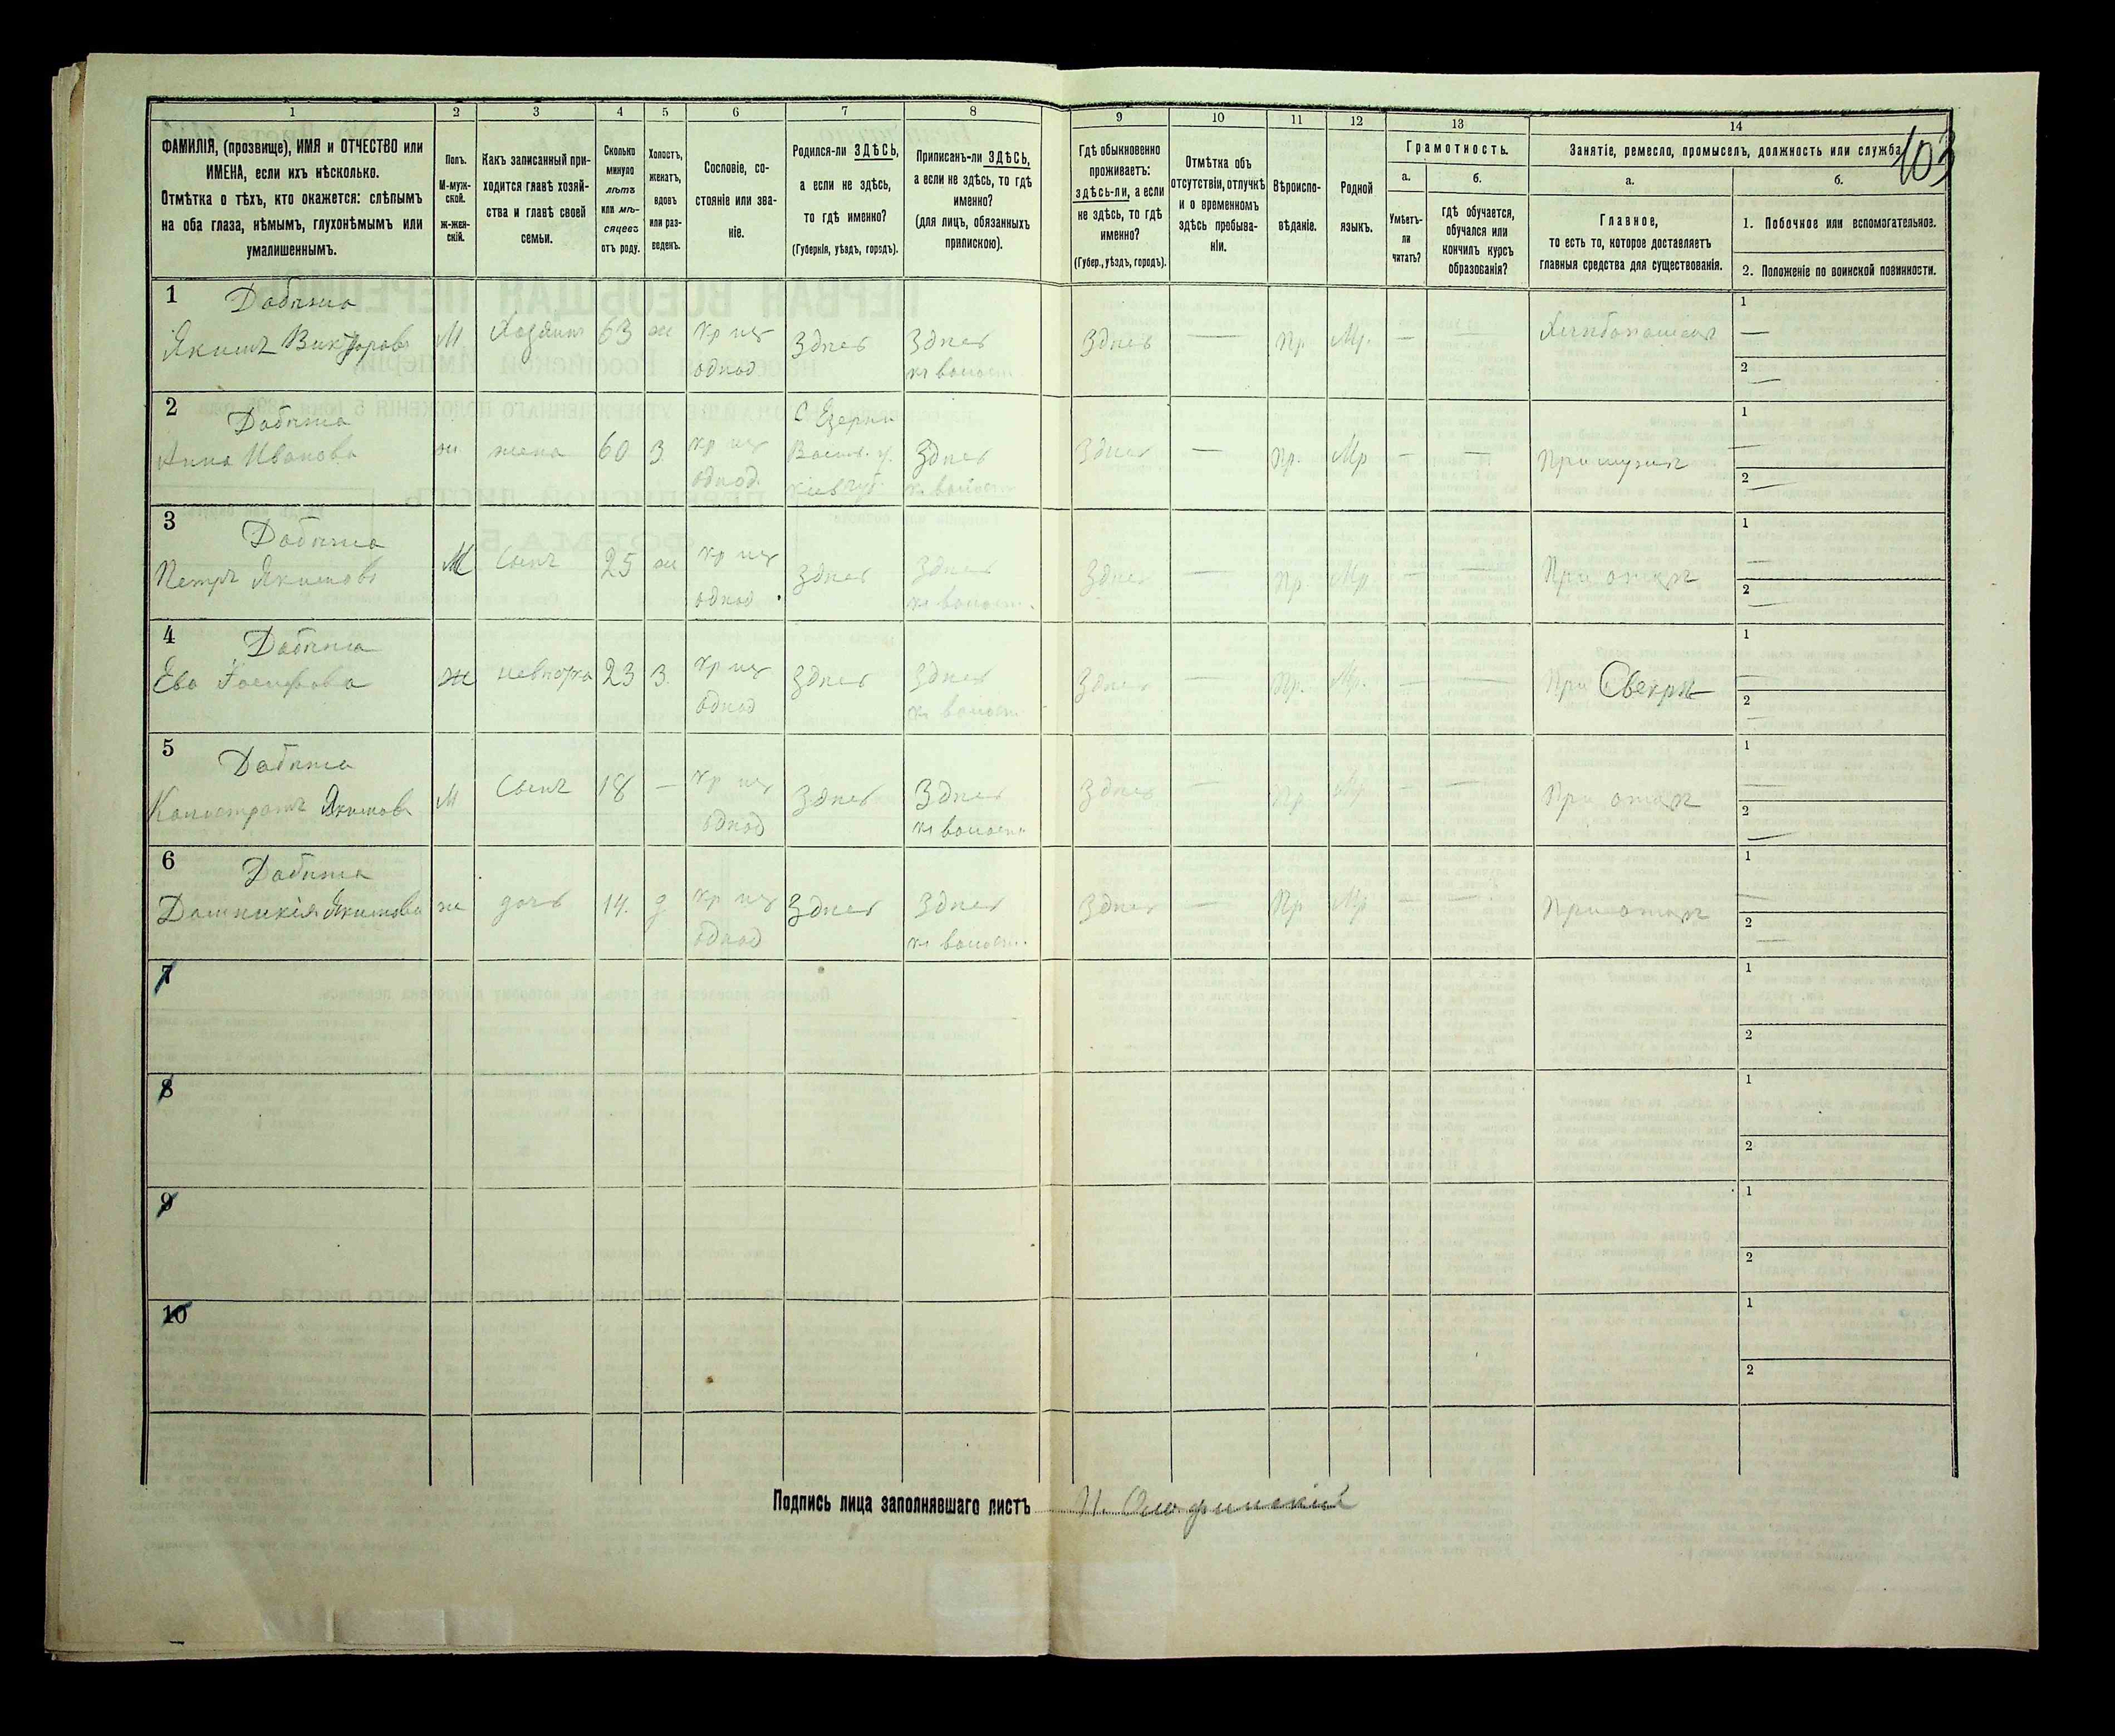 103
1
2
3
4
5
6
7
8
ФАМИЛІЯ, (прозвище), ИМЯ и ОТЧЕСТВО или
ИМЕНА, если ихъ нѣсколько.
Отмѣтка о тѣхъ, кто окажется: слѣпымъ
на оба глаза, нѣмымъ, глухонѣмымъ или
умалишеннымъ.
Полъ.
М-муж-
ской.
ж-жен-
скій.
Какъ записанный при-
ходится главѣ хозяй-
ства и главѣ своей
семьи.
Сколько
минуло
лѣтъ
или мѣ-
сяцевъ
отъ роду.
Холостъ,
женатъ,
вдовъ
или раз-
веденъ.
Сословіе, со-
стояніе или зва-
ніе.
Родился-ли ЗДѢСЬ,
а если не здѣсь,
то гдѣ именно?
(Губернія, уѣздъ, городъ).
Приписанъ-ли ЗДѢСЬ,
а если не здѣсь, то гдѣ
именно?
(для лицъ, обязанныхъ
припискою).
9
10
11
12
13
14
Гдѣ обыкновенно
проживаетъ:
здѣсь-ли, а если
не здѣсь, то гдѣ
именно?
(Губер., уѣздъ, городъ).
Отмѣтка объ
отсутствіи, отлучкѣ
и о временномъ
здѣсь пребыва-
ніи.
Вѣроиспо-
вѣданіе.
Родной
языкъ.
Грамотность.
а.
Умѣетъ-
ли
читать?
б.
гдѣ обучается,
обучался или
кончилъ курсъ
образованія?
Занятіе, ремесло, промыселъ, должность или служба.
а.
Главное,
то есть то, которое доставляетъ
главныя средства для существованія.
б.
1. Побочное или вспомогательное.
2. Положеніе по воинской повинности.
1 Дабижа
Якимъ Викторовъ М Хозяинъ 63 ж кр из Здесь Здесь Здесь — Пр Мр. — Хлебопашецъ 1 —
однод къ волост. 2 —
2 Дабижа С Езерки
Анна Иванова ж. жена 60 З. кр из Васил. у. Здесь Здесь — Пр. Мр — — При мужѣ 1 —
однод. Киев губ. къ волост 2 —
3 Дабижа
Петръ Якимовъ М Сынъ 25 ж кр из Здесь Здесь Здесь — Пр. Мр — — При отцѣ 1 —
однод. къ волост. 2 —
4 Дабижа
Ева Іосифова ж невѣстка 23 З. кр из Здесь Здесь Здесь — Пр. Мр. — — При Свекрѣ 1 —
однод къ волост 2 —
5 Дабижа
Калистратъ Якимовъ М Сынъ 18 — кр из Здесь Здесь Здесь — Пр Мр — — При отцѣ 1
однод къ волост 2 —
6 Дабижа
Домникія Якимова ж дочь 14. д кр из Здесь Здесь Здесь — Пр Мр — — При отцѣ 1 —
однод къ волост. 2 —
7 1
2
8 1
2
9 1
2
10 1
2
Подпись лица заполнявшаго листъ